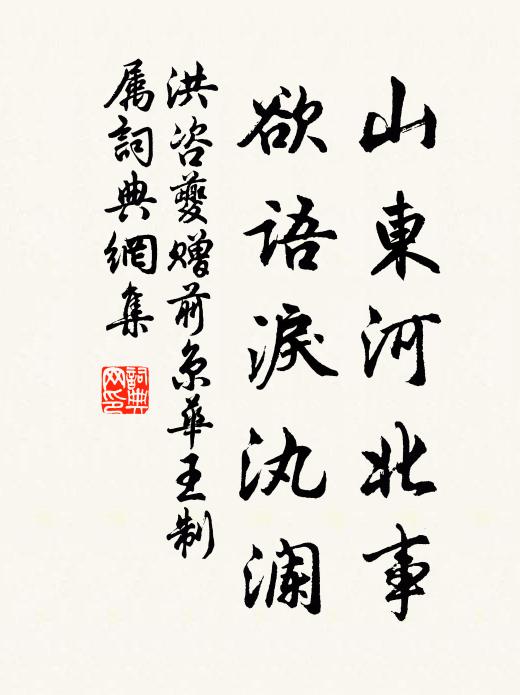 山東河北事
欲語淚汍瀾
洪咨夔赠前京華王制
属詞典網集
詞典
网印